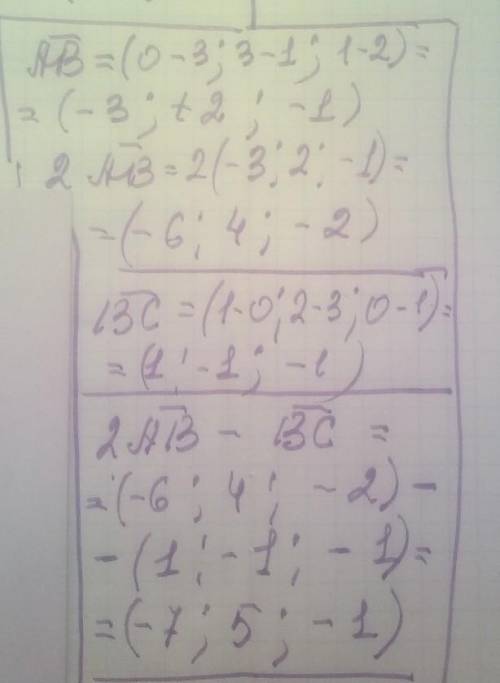 AB = (0-3; 3-1; 1-2) =
= (-3; +2; -1)
2 AB = 2(-3; 2; -1) =
= (-6; 4; -2)
BC = (1-0; 2-3; 0-1) =
= (1; -1; -1)
2AB - BC =
= (-6; 4; -2) -
- (1; -1; -1) =
= (-7; 5; -1)